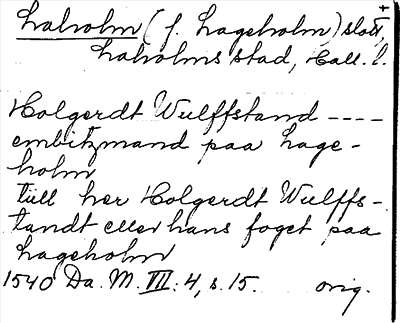 Laholm (f. Lageholm) slott, +
Laholms stad, Hall. l.
Holgerdt Wulffstand ----
embitzmand paa Lage-
holm
till her Holgerdt Wulffs-
tandt eller hans foget paa
Lageholm
1540 Da. M. VII: 4, s. 15. orig.